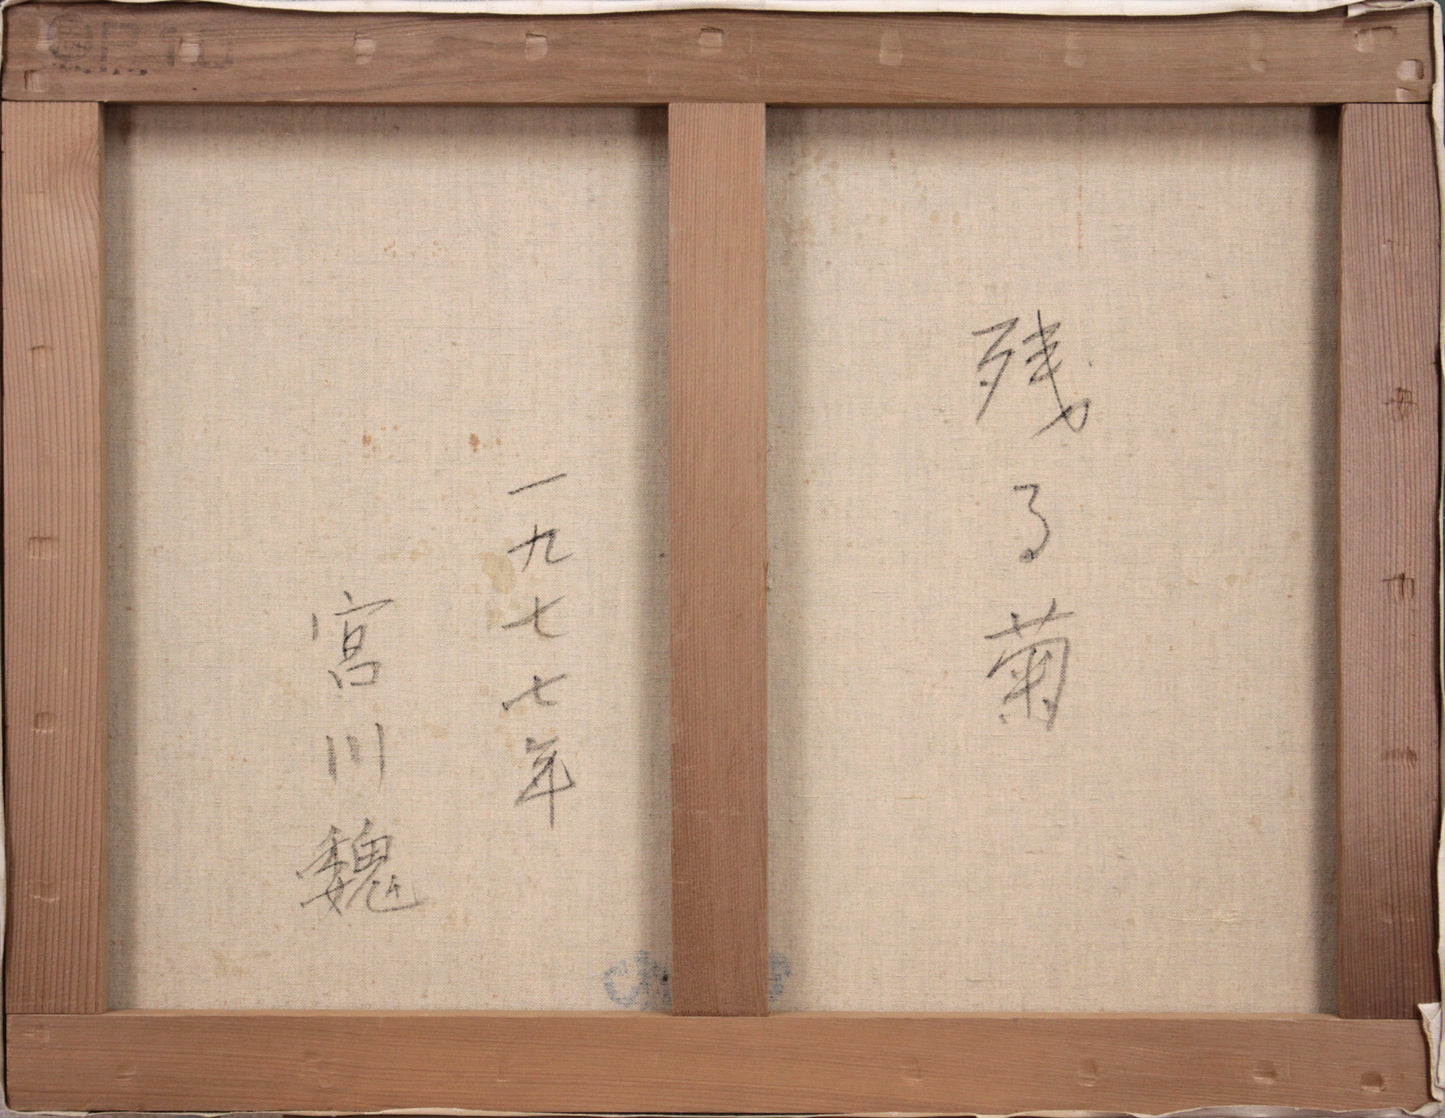 残る菊
一九七七年
宮川魏
P10